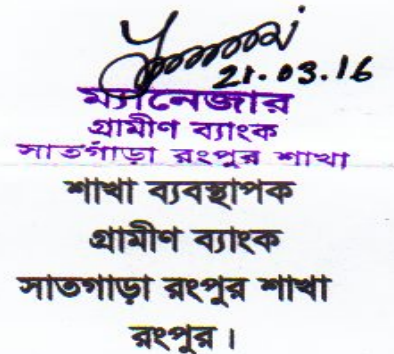 21.03.16
ম্যানেজার
গ্রামীণ ব্যাংক
সাতগাঁড়া রংপুর শাখা
শাখা ব্যবস্থাপক
গ্রামীণ ব্যাংক
সাতগাড়া রংপুর শাখা
রংপুর।